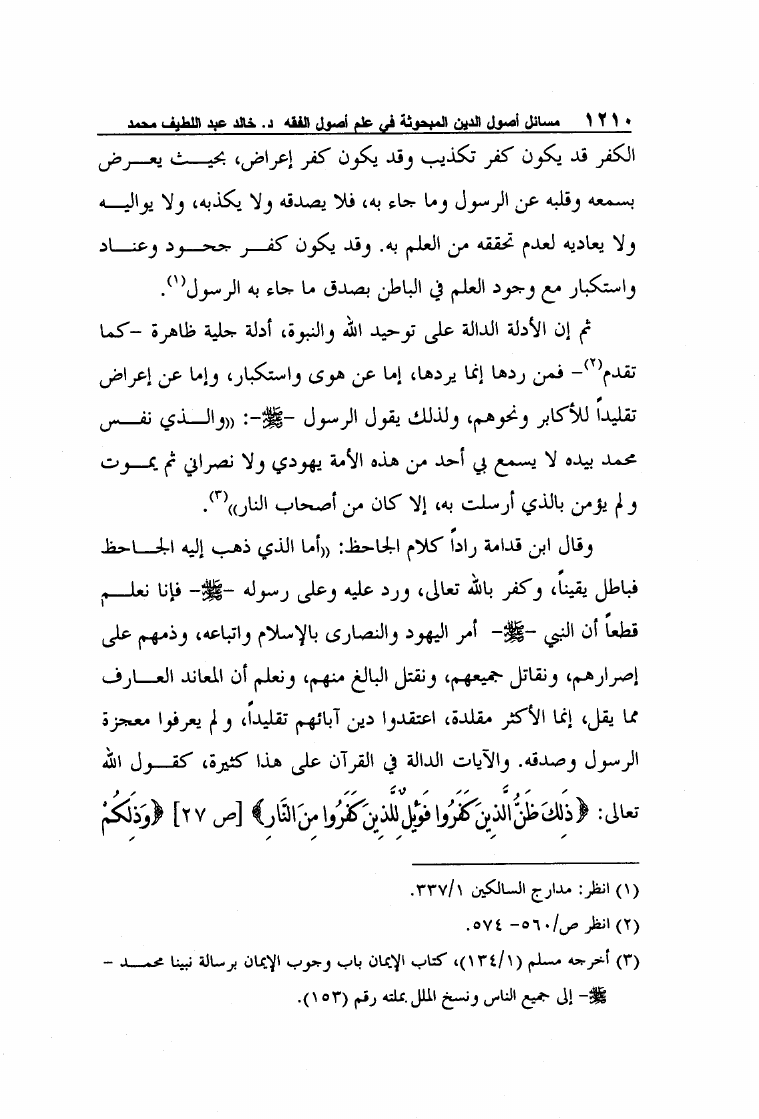 ١٢١٠ مسائل أصول الدين المبحوثة في علم أصول الفقه د. خالد عبد اللطيف محمد
الكفر قد يكون كفر تكذيب وقد يكون كفر إعراض، بحيث يعرض
بسمعه وقلبه عن الرسول وما جاء به، فلا يصدقه ولا يكذبه، ولا يواليه
ولا يعاديه لعدم تحققه من العلم به. وقد يكون كفر جحود وعناد
واستكبار مع وجود العلم في الباطن بصدق ما جاء به الرسول(١).
ثم إن الأدلة الدالة على توحيد الله والنبوة، أدلة جلية ظاهرة -كما
تقدم(٢)- فمن ردها إنما يردها، إما عن هوى واستكبار، وإما عن إعراض
تقليداً للأكابر ونحوهم، ولذلك يقول الرسول -ﷺ-: ((والذي نفس
محمد بيده لا يسمع بي أحد من هذه الأمة يهودي ولا نصراني ثم يموت
ولم يؤمن بالذي أرسلت به، إلا كان من أصحاب النار))(٣).
وقال ابن قدامة راداً كلام الجاحظ: ((أما الذي ذهب إليه الجاحظ
فباطل يقيناً، وكفر بالله تعالى، ورد عليه وعلى رسوله -ﷺ- فإنا نعلم
قطعاً أن النبي -ﷺ- أمر اليهود والنصارى بالإسلام واتباعه، وذمهم على
إصرارهم، ونقاتل جميعهم، ونقتل البالغ منهم، ونعلم أن المعاند العارف
مما يقل، إنما الأكثر مقلدة، اعتقدوا دين آبائهم تقليداً، ولم يعرفوا معجزة
الرسول وصدقه. والآيات الدالة في القرآن على هذا كثيرة، كقول الله
تعالى: ﴿ذَلِكَ ظَنُّ الَّذِينَ كَفَرُوا فَوَيْلٌ لِلَّذِينَ كَفَرُوا مِنَ النَّارِ﴾ [ص ٢٧] ﴿وَذَلِكُمْ
(١) انظر: مدارج السالكين ٣٣٧/١.
(٢) انظر ص/٥٦٠- ٥٧٤.
(٣) أخرجه مسلم (١٣٤/١)، كتاب الإيمان باب وجوب الإيمان برسالة نبينا محمد -
ﷺ- إلى جميع الناس ونسخ الملل بملته رقم (١٥٣).